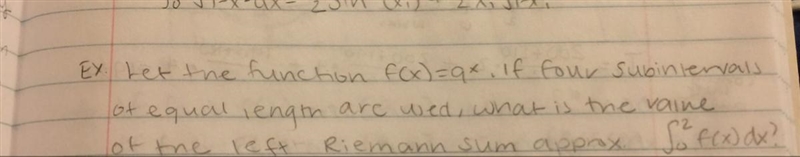 Ex. Let the function f(x)=9ˣ. If four subintervals
of equal length are used, what is the value
of the left Riemann sum approx. ∫₀² f(x)dx?